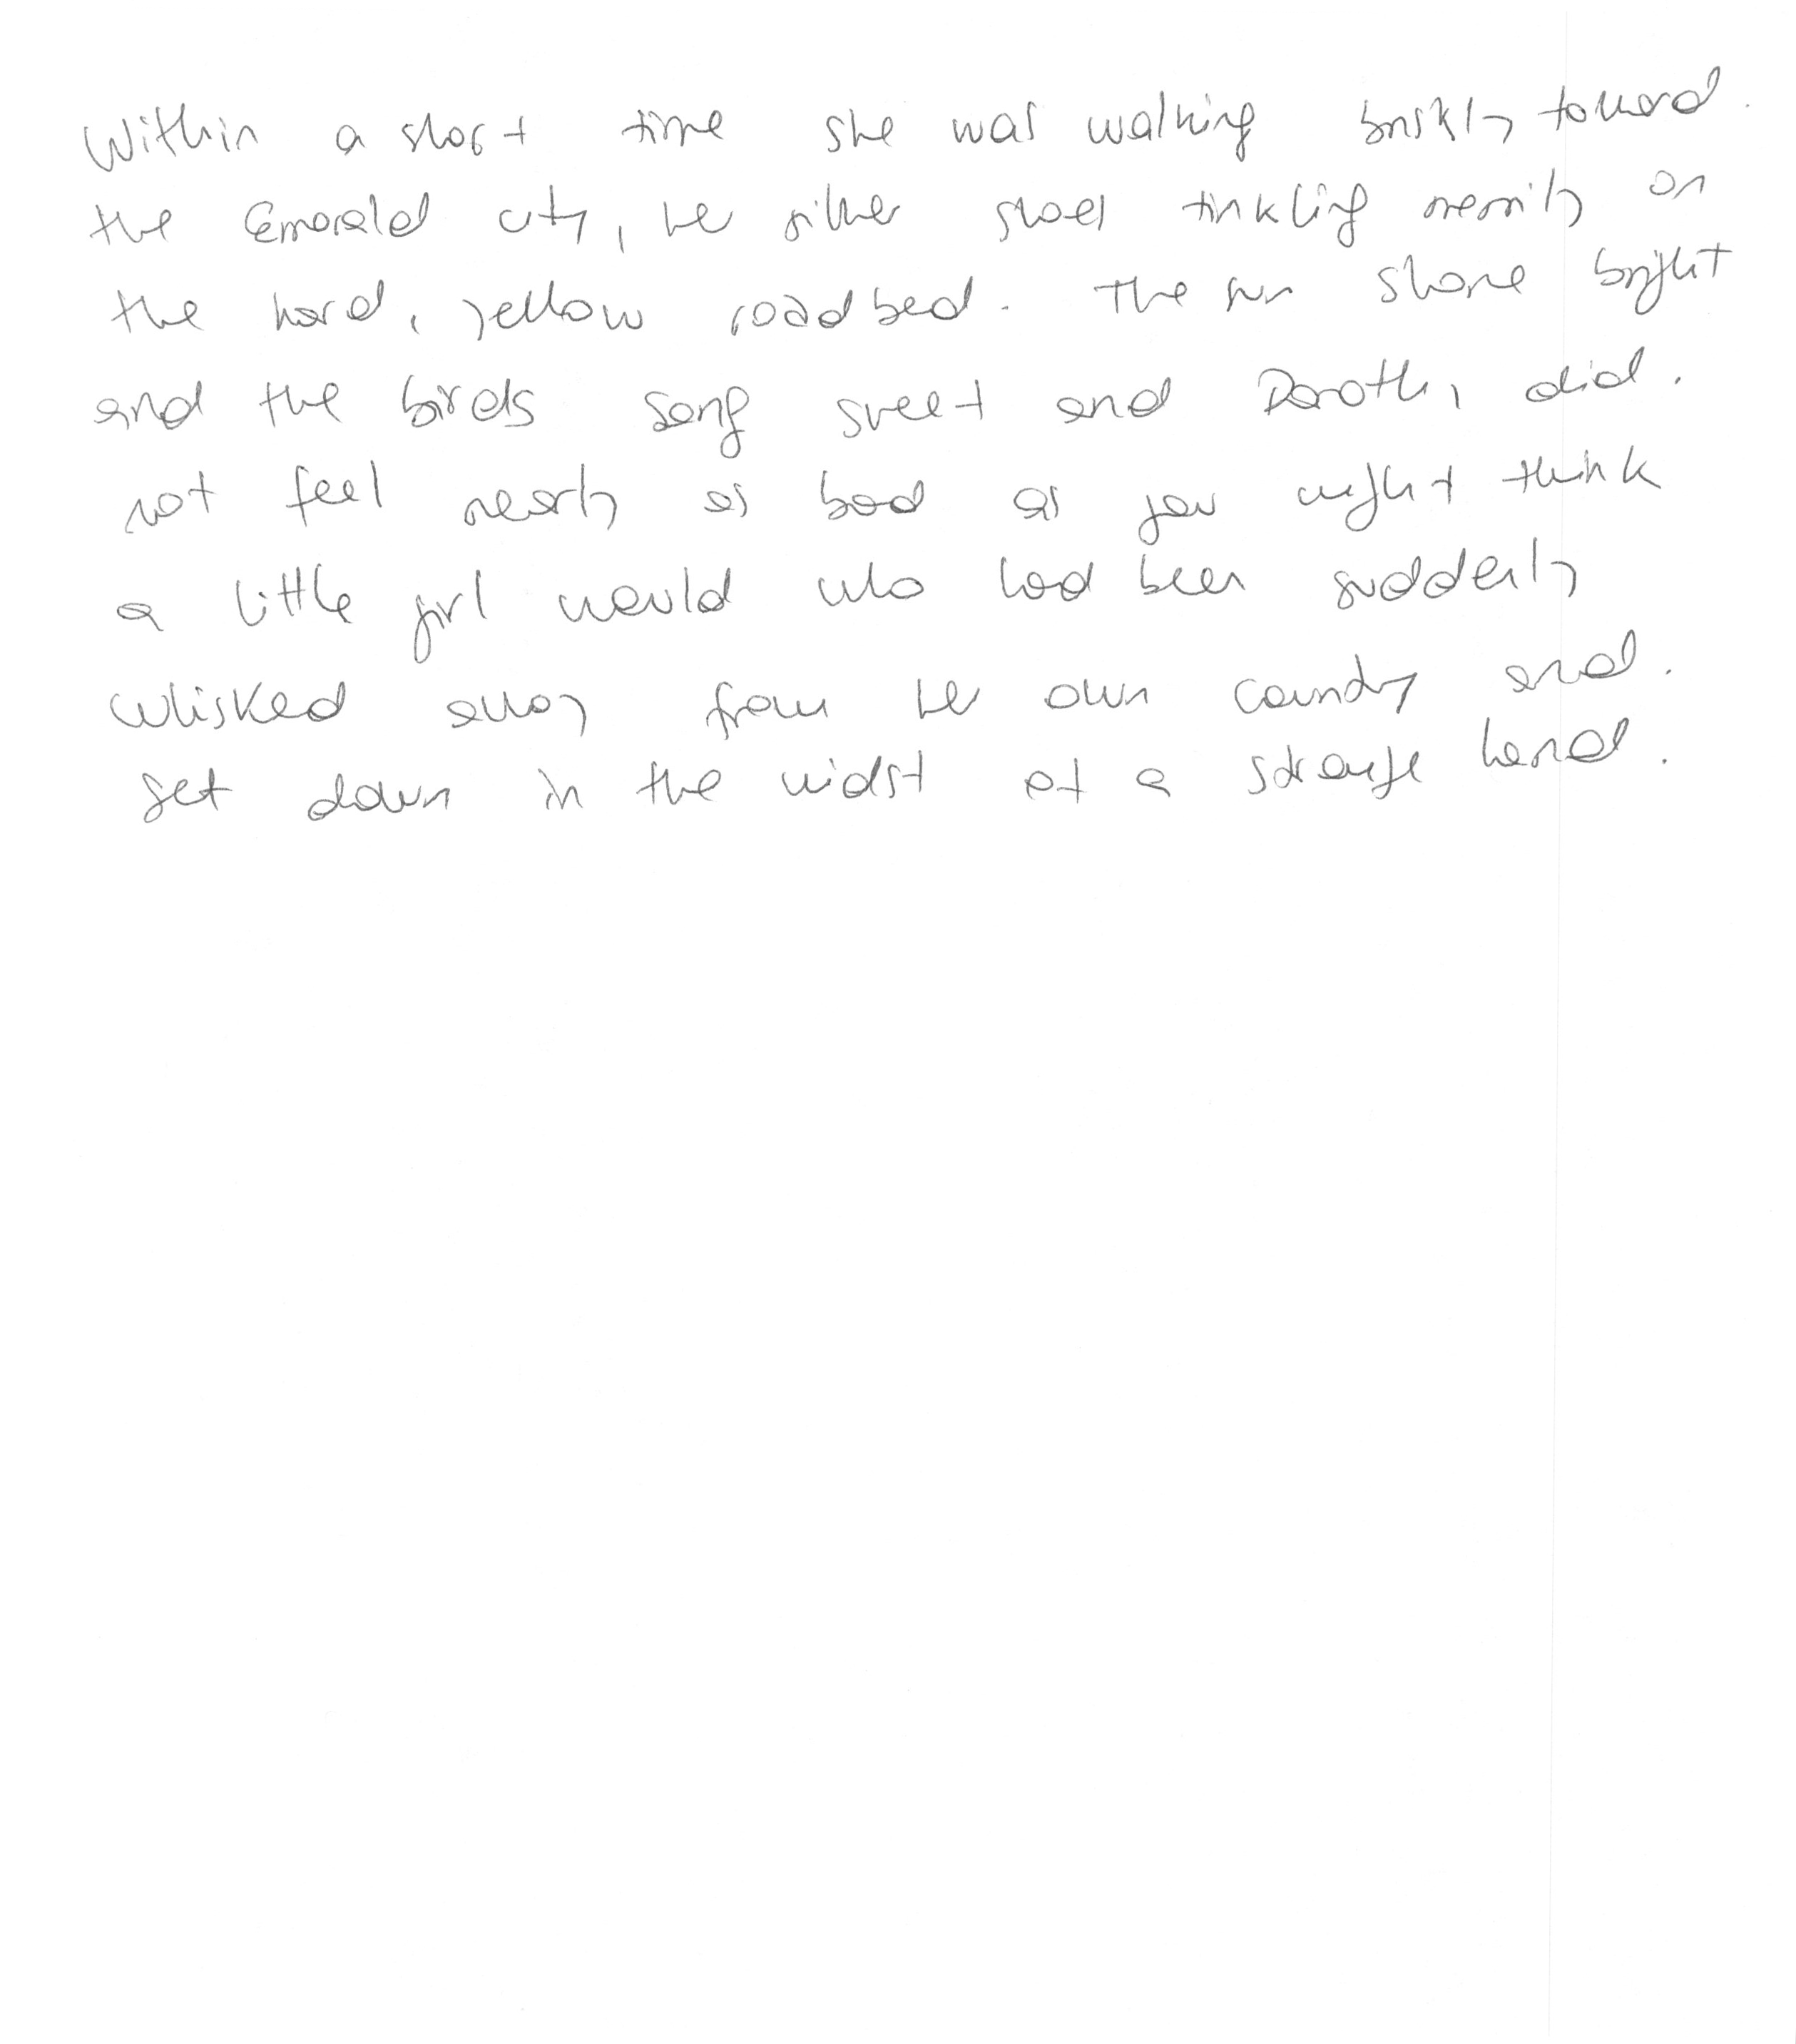 Within a short time she was walking briskly toward
the Emerald city, her silver shoes tinkling merrily on
the hard, yellow roadbed. The sun shone bright
and the birds sang sweet and Dorothy did
not feel nearly as bad as you might think
a little girl would who had been suddenly
whisked away from her own country and
set down in the midst of a strange land.